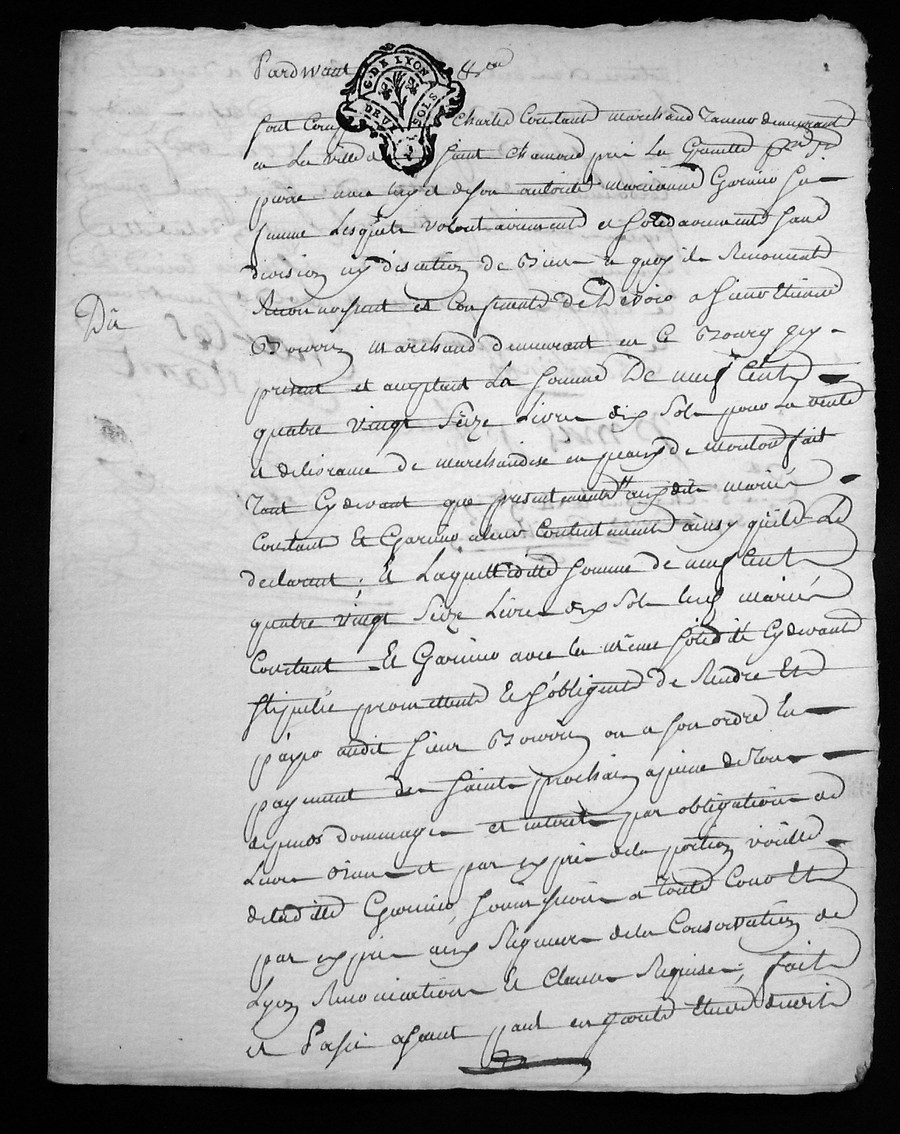 Pardevant &ca
G. DE LYON
DEUX SOLS
sont comp Charles Constant marchand Taneur demeurant
en La ville de Saint chamond près La Grenette
pnée avec luy et de son autorité Marianne Garnier sa
femme Lesquels volontairement et solidairement sans
division ny discution de Biens a quoy ils Renoncent
Reconnoissent et Confessent Devoir a sieur Etienne
marchand demeurant en ce Bourg icy
present et acceptant La somme De neuf Cent
quatre vingt seize Livres dix sols pour La vente
et delivrance de marchandise en peaux de mouton fait
Tant cydevant que presentement auxdits mariés
Constant et Garnier a leur contentement ainsy qu'ils Le
declarent, et Laquelle ditte somme de neuf Cent
quatre vingt seize Livres dix sols lesd mariés
Constant et Garnier avec la même solidité cydevant
stipulée promettent et s'obligent de Rendre et
payer audit sieur ou a son ordre En
payement des saints prochain a peine de Tous
depens dommages et interets par obligation de
Leurs Biens et par exprès de la portion virille
de laditte Garnier, soumission a Toute Cour et
par exprès aux seigneurs de la Conservation de
Lyon Renonciation et Clause Requise, fait
et Passé a Saint paul en Jarret Etude dudit
Dû